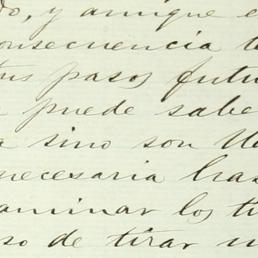 do, y aunque e
onsecuencia te
tus pasos futu
puede sabe
a sino son Ud
necesaria has
aminar los t
so de tirar u